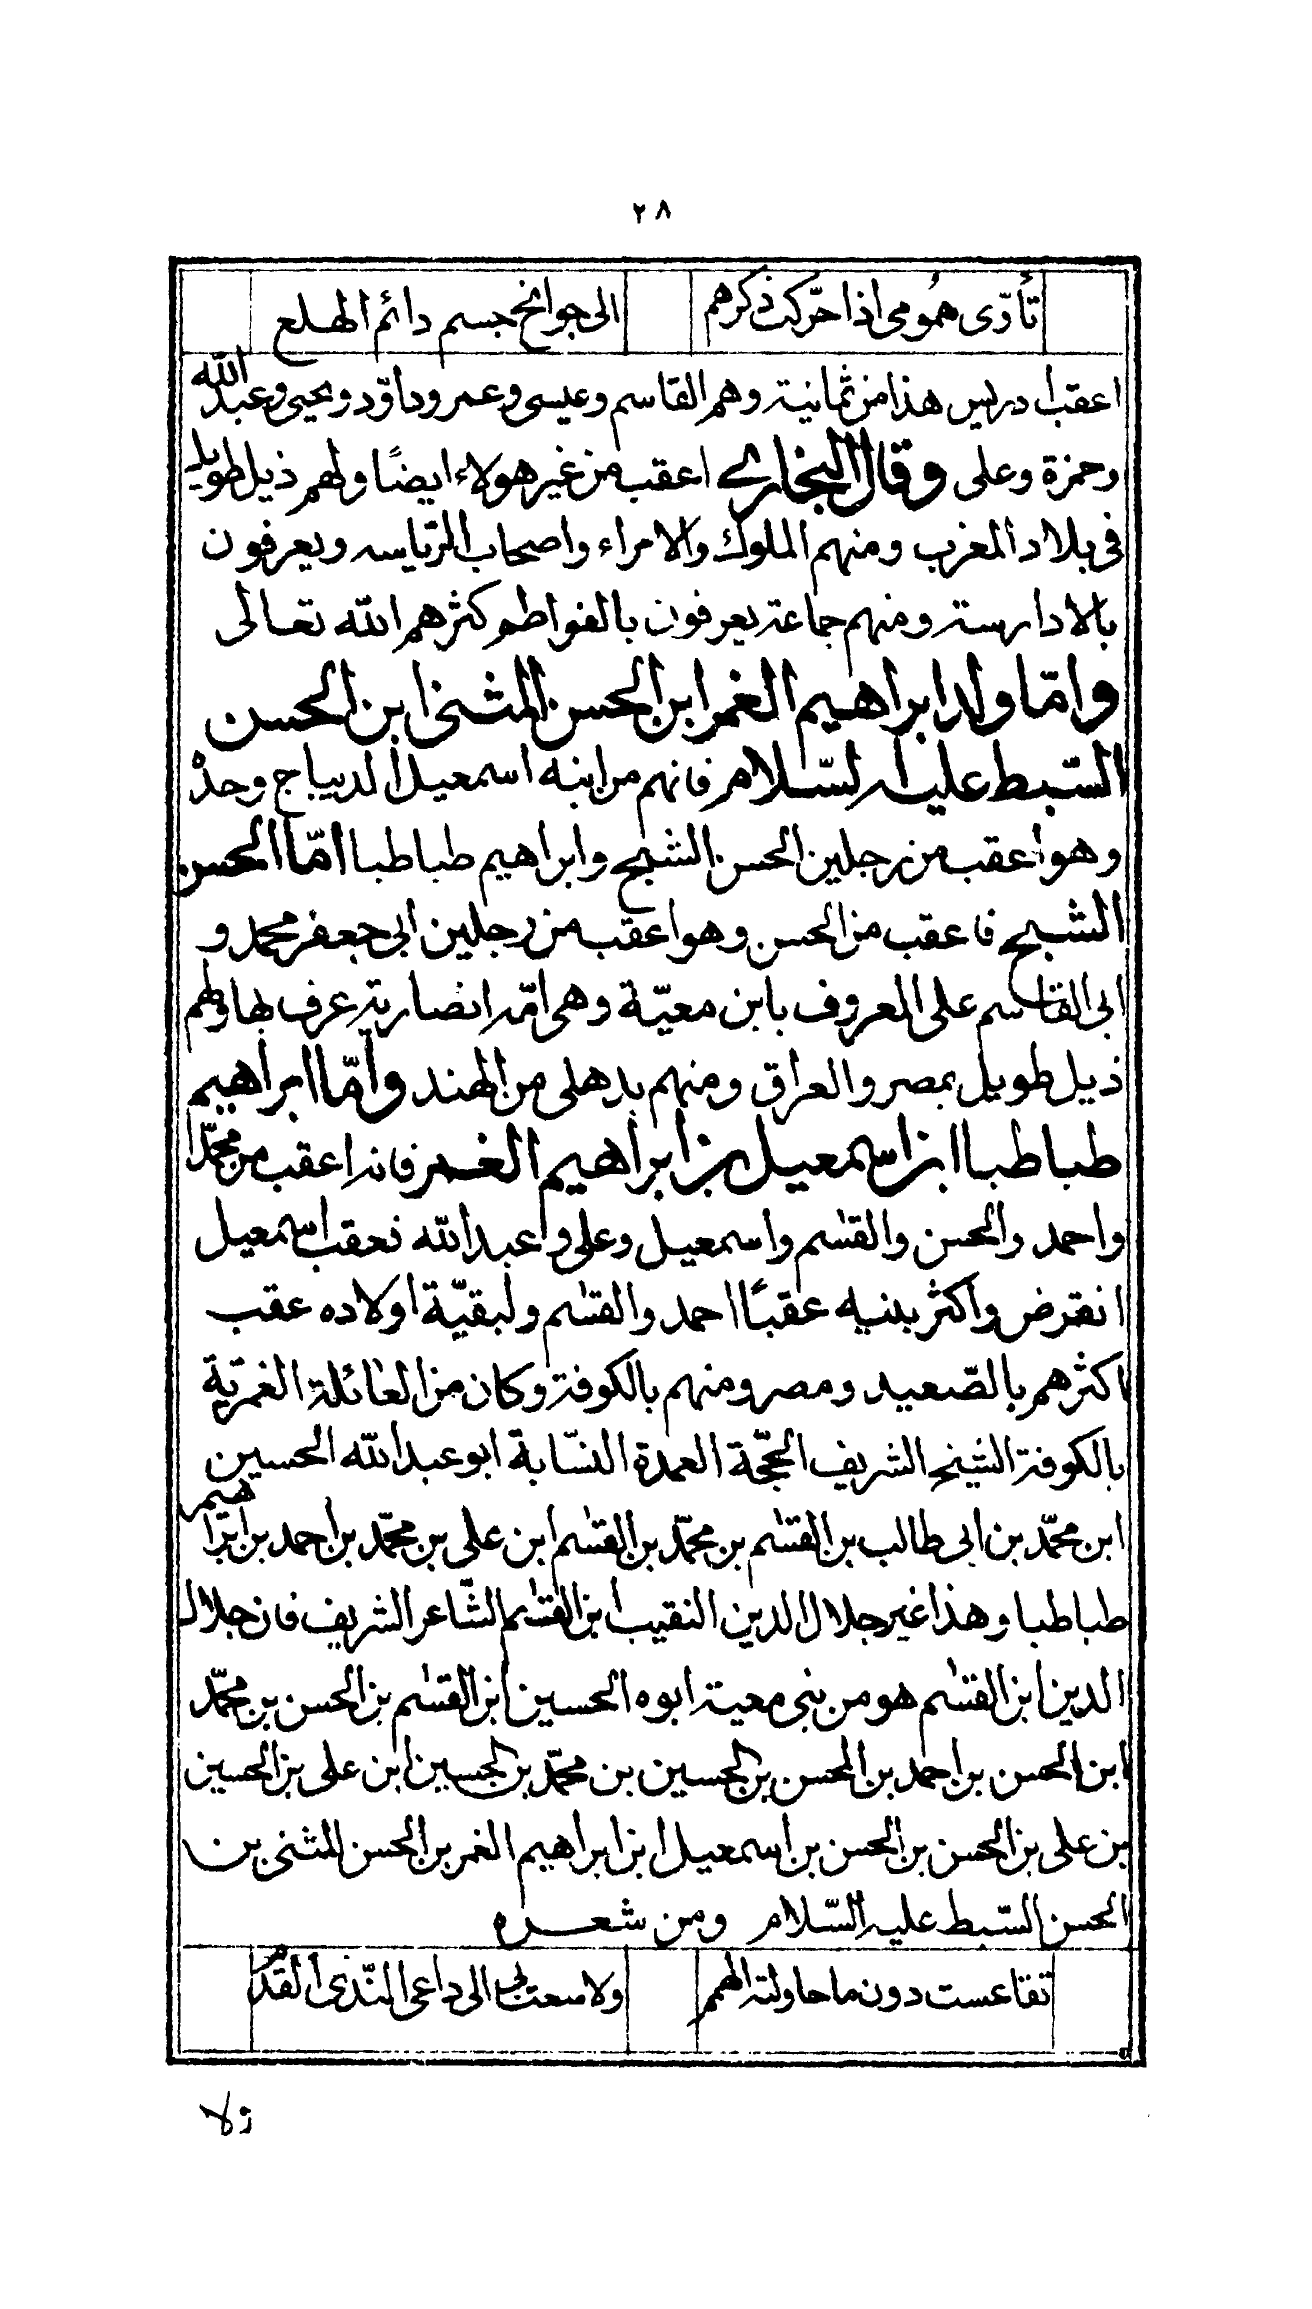 ٢٨
تأوّى همُومى اذا حرّكت ذكرهم الى جوانح جسم دائم الهلع
اعقب ادريس هذا من ثمانية وهم القاسم وعيسى وعمر وداوّد ويحيى وعبد الله
وحمزة وعلى وقال البخارى اعقب من غير هولاء ايضًا ولهم ذيل طويل
فى بلاد المغرب ومنهم الملوك والامراء واصحاب الرّياسه ويعرفون
بالادارسة ومنهم جماعة يعرفون بالفواطم كثرهم الله تعالى
وامّا ولد ابراهيم الغمر ابن الحسن المثنى ابن الحسن
السّبط عليه السّلام فانهم من ابنه اسمعيل الديباج وحدهْ
وهو اعقب من رجلين الحسن الشيح وابراهيم طباطبا امّا الحسن
الشيح فاعقب من الحسن وهو اعقب من رجلين ابى جعفر محمد و
ابى القاسم على المعروف بابن معيّة وهى امّه انصارية عرف بها ولهم
ذيل طويل بمصر والعراق ومنهم بدهلى من الهند وامّا ابراهيم
طباطبا ابن اسمعيل بن ابراهيم الغمر فانه اعقب من محمّد
واحمد والحسن والقسٰم واسمعيل وعلى وعبد الله فعقب اسمعيل
انقرض واكثر بنيه عقبًا احمد والقسٰم ولبقيّة اولاده عقب
اكثرهم بالصّعيد ومصر ومنهم بالكوفة وكان من العائلة الغمريّة
بالكوفة الشيخ الشريف الحجّة العمدة النسّابة ابو عبد الله الحسين
ابن محمّد بن ابى طالب بن القسٰم بن محمّد بن القسٰم ابن على بن محمّد بن احمد بن ابراهيم
طباطبا وهذا غير جلال الدين النقيب ابن القسٰم الشّاعر الشريف فان جلال
الدين ابن القسٰم هو من بنى معية ابوه الحسين ابن القسٰم بن الحسن بن محمّد
ابن الحسن بن احمد بن المحسن بن الحسين بن محمّد بن الحسين ابن على بن الحسين
بن على بن الحسن بن الحسن بن اسمعيل ابن ابراهيم الغمر بن الحسن المثنى بن
الحسن السّبط عليه السّلام ومن شعره
تقاعست دون ما حاولته الهمم ولا سعت بى الى داعى النّدى القدمُ
ولا